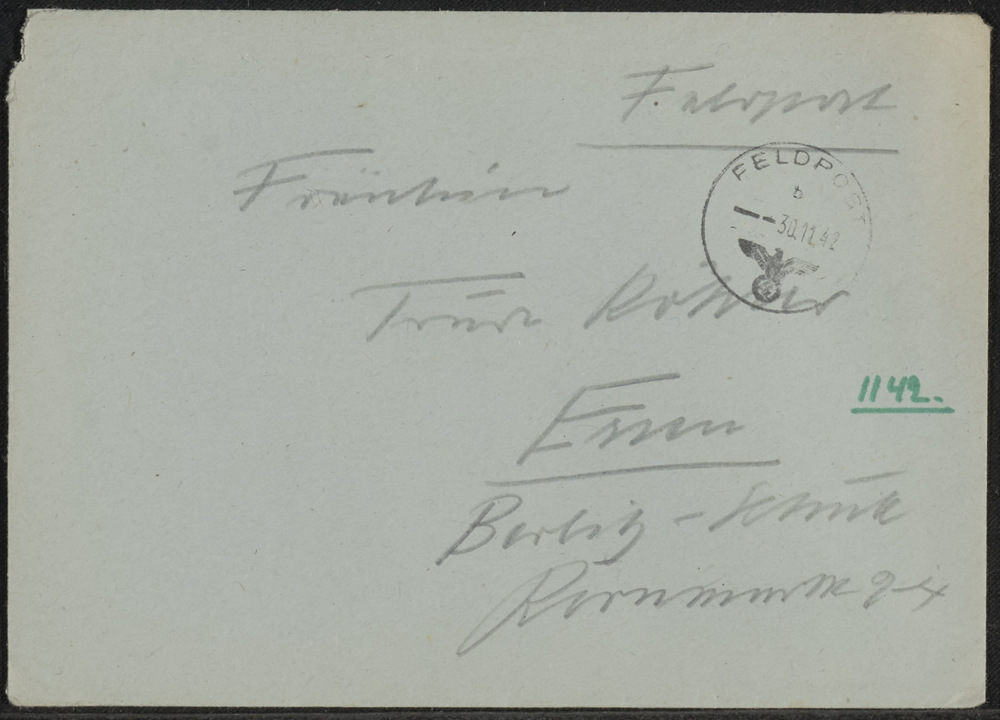 Feldpost
FELDPOST
b
--30.11.42
Fräulein
Trude
1142.
Essen
Berlitz-Schule
Kornmarkt